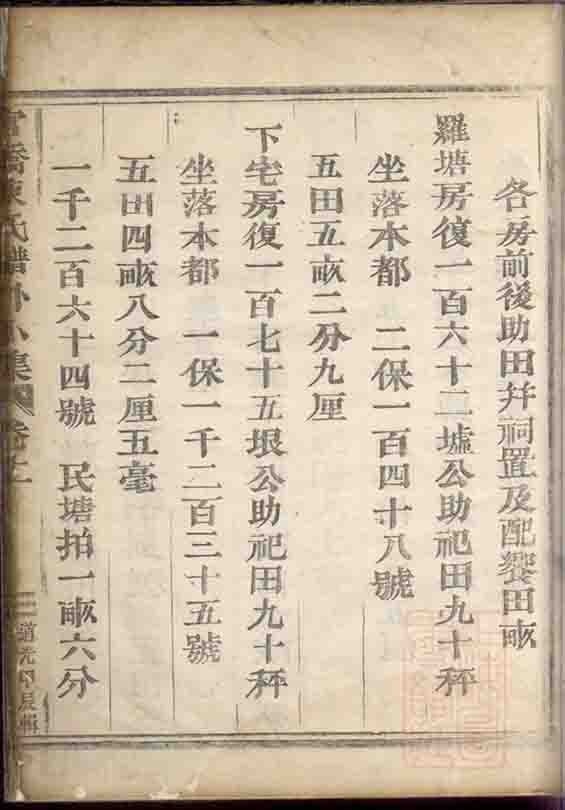 各房前後助田幷祠置及配饗田畝
羅塘房復一百六十二墟公助祀田九十秤
坐落本都 二保一百四十八號
五田五畝二分九厘
下宅房復一百七十五垠公助祀田九十秤
坐落本都 一保一千二百三十五號
五田四畝八分二厘五毫
一千二百六十四號 民塘拍一畝六分
橋陳氏譜外小集
道光甲辰輯